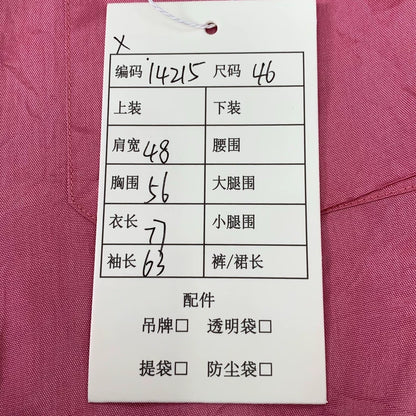 X
编码 14215 尺码 46
上装 下装
肩宽 48 腰围
胸围 56 大腿围
衣长 77 小腿围
袖长 63 裤/裙长
配件
吊牌□ 透明袋□
提袋□ 防尘袋□